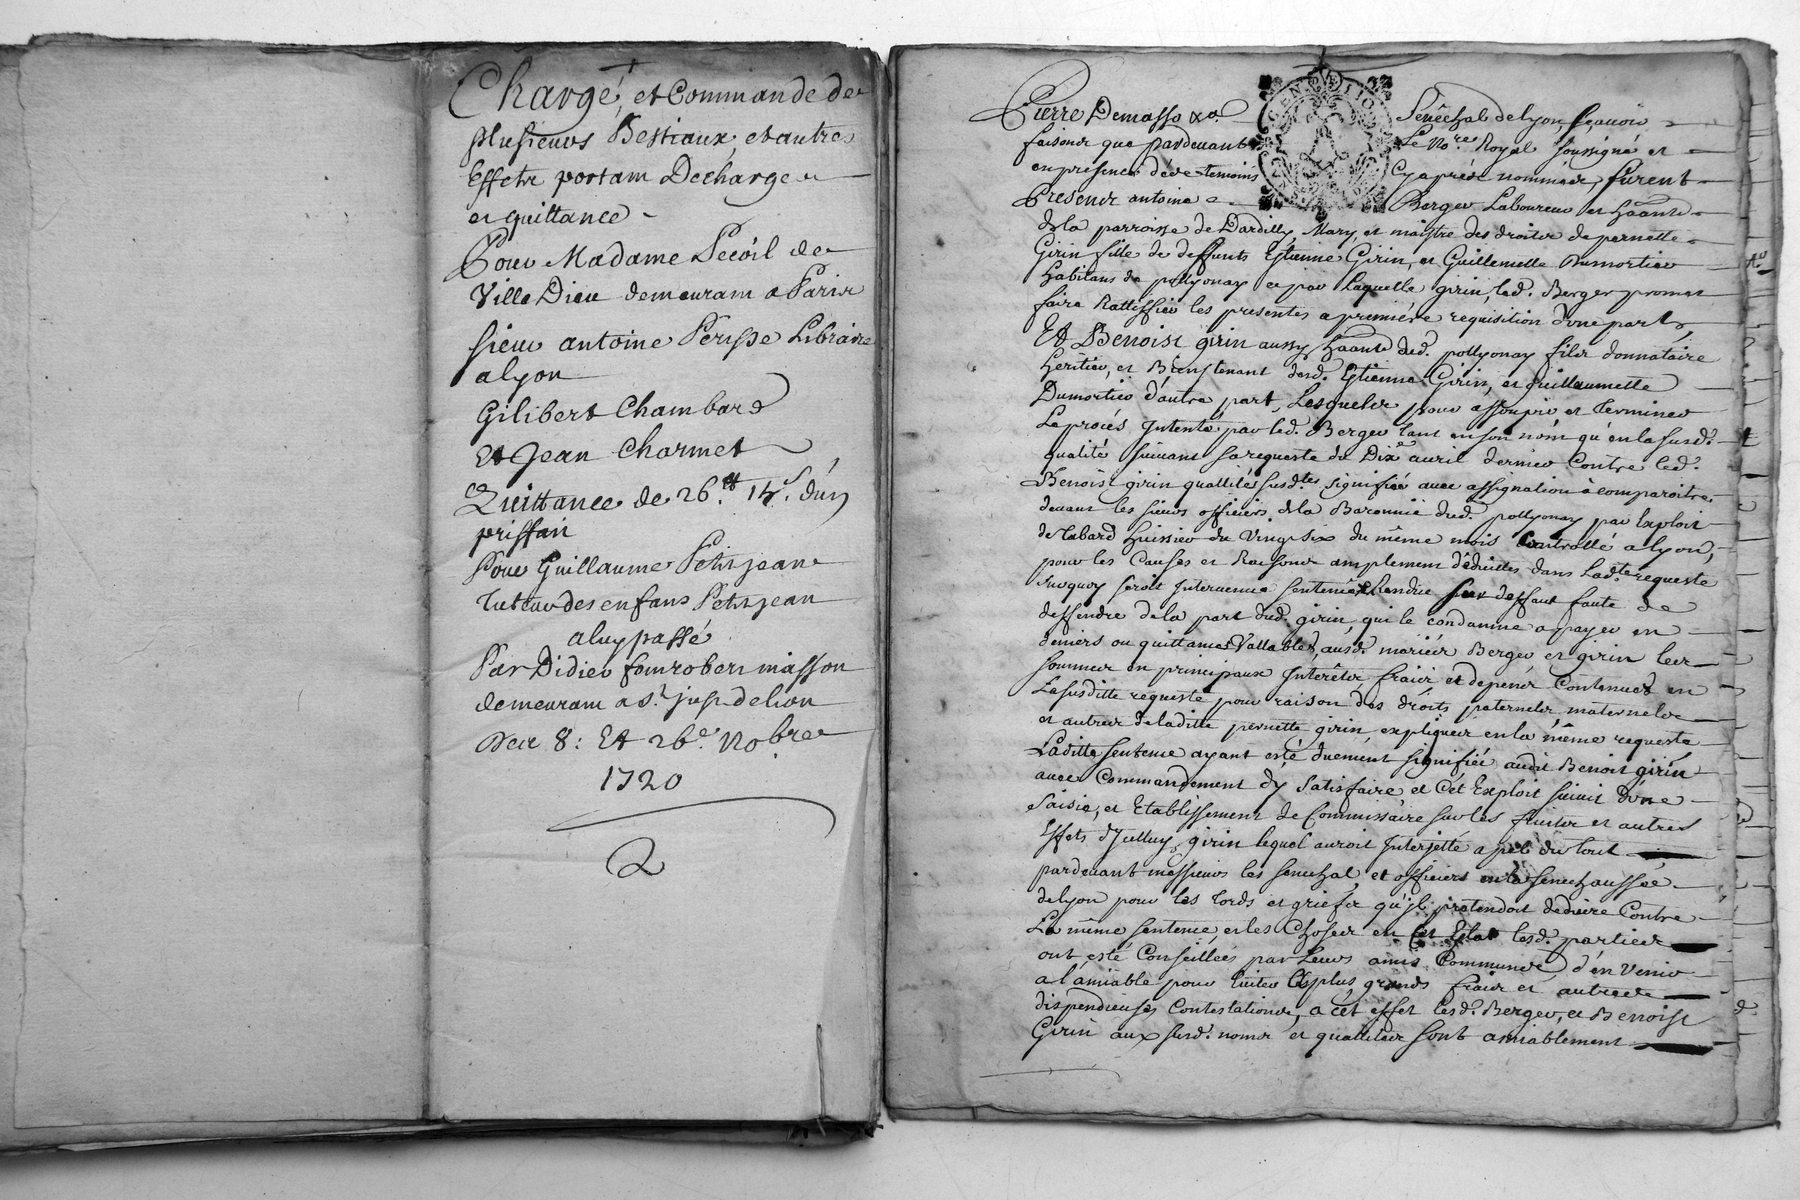 Chargé, et Commande de
plusieurs Bestiaux, et autres
Effets portam Decharge
et quittance
Pour Madame Pecoil de
Ville Dieu demeuram a Paris
sieur antoine Perisse Libraire
a lyon
Gilibert Chambard
Et Jean Charmet
Quittance de 26.lt 14.s dun
prissain
Pour Guillaume Petitjean
Tuteur des enfans Petitjean
a luy passé
Par Didier masson
demeuram a St. just de lion
Des 8: Et 26e. Nobre
1720
2
Pierre Demasso Senêchal de lyon, sçavoir
faisons que pardevant Le Nore. Royal soussigné et
en presence des temoins Cy aprés nommés, furent
Presens antoine Berger Laboureur et haant
de la parroisse de Dardilly, Mary, et maistre des droits de pernette
Girin fille de deffunts Estienne Girin, et Guillemette Dumortier
habitans de pollyonay et par Laquelle girin, led. Berger promet
faire Rattiffier les presentes a premiére requisition d'une part,
Et Benoist girin aussy haant dud. pollyonay fils donnataire
heritier, et Bientenant desd. Estienne Girin, et guillaumette
Dumortier d'autre part, Lesquels pour assoupir et Terminer
Le procés Intenté par led. Berger tant en son nom qu'en la susd.
qualité suivant sa requeste du Dix avril dernier Contre led.
Benoist girin quallité susd.te signifiée avec assignation à comparoitre
devant les sieurs officiers de la Baronnie dud. pollyonay par Exploit
de Tabard huissier du Vingt six du même mois Controllé a lyon,
pour les Causes et Raisons amplement déduittes dans Lad.te requeste
surquoy seroit Intervenue sentence Rendue sur deffaut faute de
deffendre de la part dud. girin, qui le condamne a payer en
deniers ou quittances Vallables, ausd. mariés Berger et girin les
sommes en principaux Interêts fraix et depens Contenues en
La susditte requeste pour raison des droits paternels, maternels
et autres de laditte pernette girin, expliqués en la même requeste
Laditte sentence ayant esté duement signifiée audit Benoist girin
avec Commandement d'y satisfaire et Cét Exploit suivit d'une
Saisie, et Etablissement de Commissaire sur les fruits et autres
Effets d'Icelluy girin lequel auroit Interjetté apel du tout
pardevant messieurs les senechal, et officiers en la senechaussée
de lyon pour les Tords et griefs qu'il prétendoit deduire Contre
La même sentence, et les Choses en Cet Etat lesd. parties
ont esté Conseillées par Leurs amis Communs, d'en Venir
a l'amiable pour Eviter les plus grands fraix et autres
dispendieuses Contestations, a cét effet lesd. Berger, et Benoist
Girin aux susd. noms et quallités sont amiablement